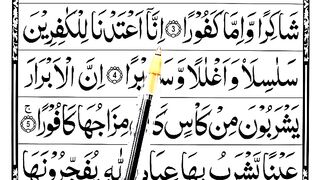 شَاكِرًا وَّاِمَّا كَفُوْرًا ۝۳ اِنَّاۤ اَعْتَدْنَا لِلْكٰفِرِيْنَ
سَلٰسِلَا۠ وَاَغْلٰلًا ۝۴ اِنَّ الْاَبْرَارَ
يَشْرَبُوْنَ مِنْ كَاْسٍ مِزَاجُهَا كَافُوْرًا ۝۵
عَيْنًا يَّشْرَبُ بِهَا اللّٰهِ يُفَجِّرُوْنَهَا